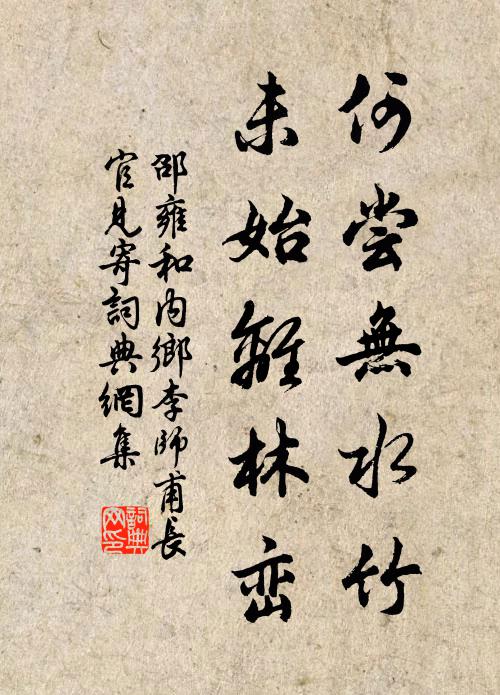 何嘗無水竹
未始離林巒
邵雍和內鄉李師甫長
官見寄詞典網集
詞典网印